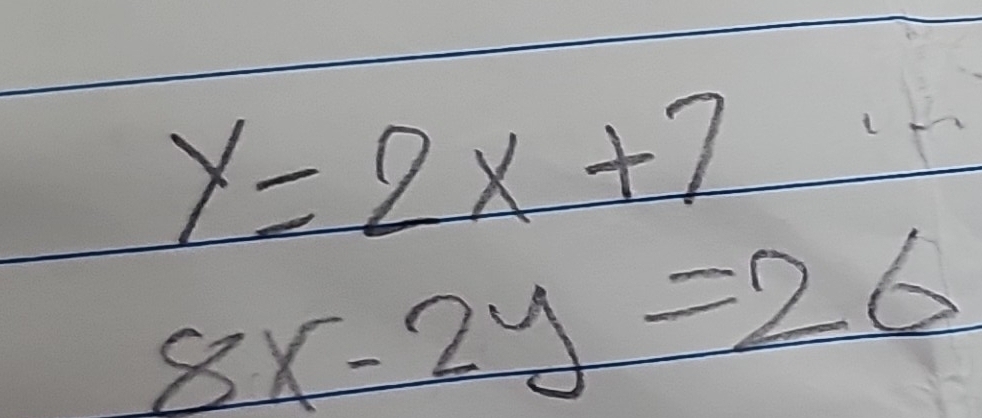 y = 2x + 7
8x - 2y = 26